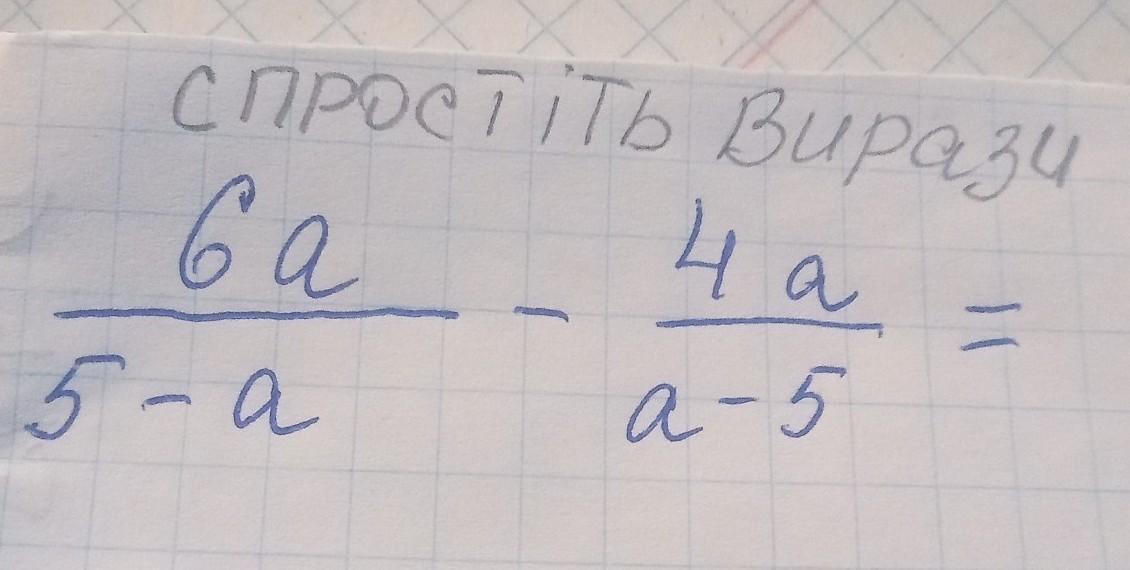 спростіть вирази
6a/(5-a) - 4a/(a-5) =